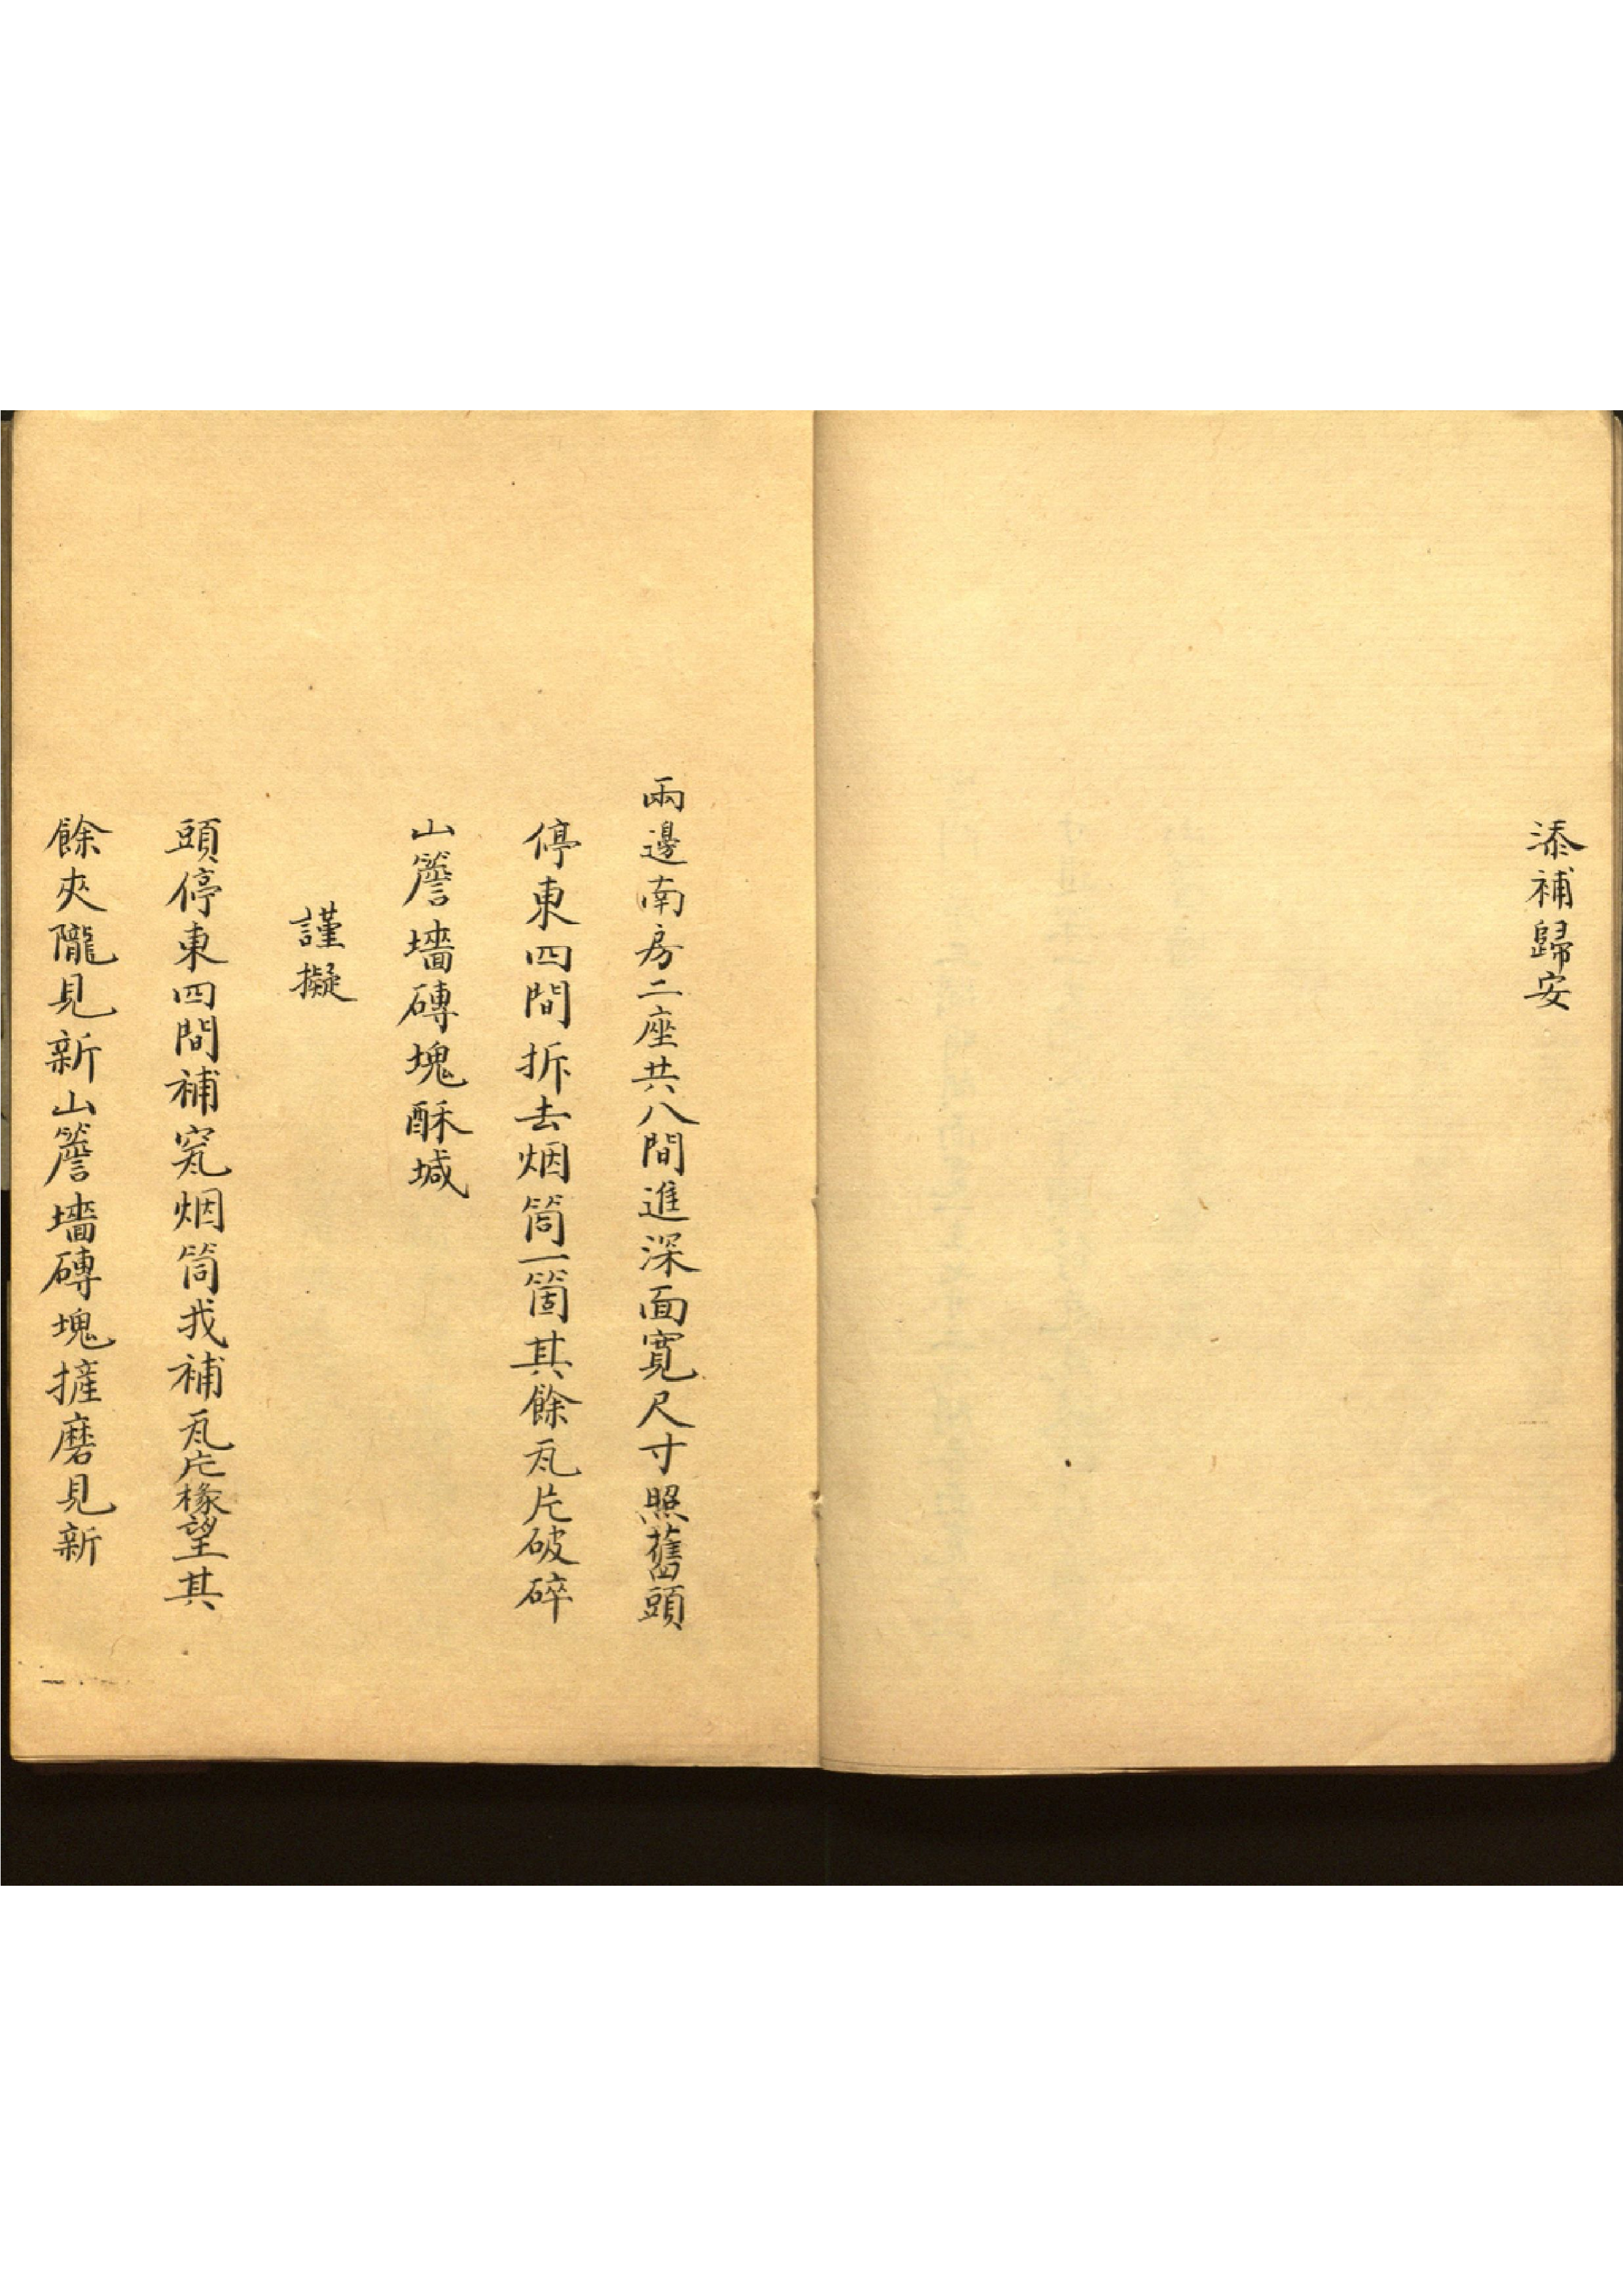 添補歸安
兩邊南房二座共八間進深面寬尺寸照舊頭
停東四間拆去烟筒一箇其餘瓦片破碎
山簷墻磚塊酥堿
謹擬
頭停東四間補窊烟筒找補瓦片椽望其
餘夾隴見新山簷墻磚塊摌磨見新